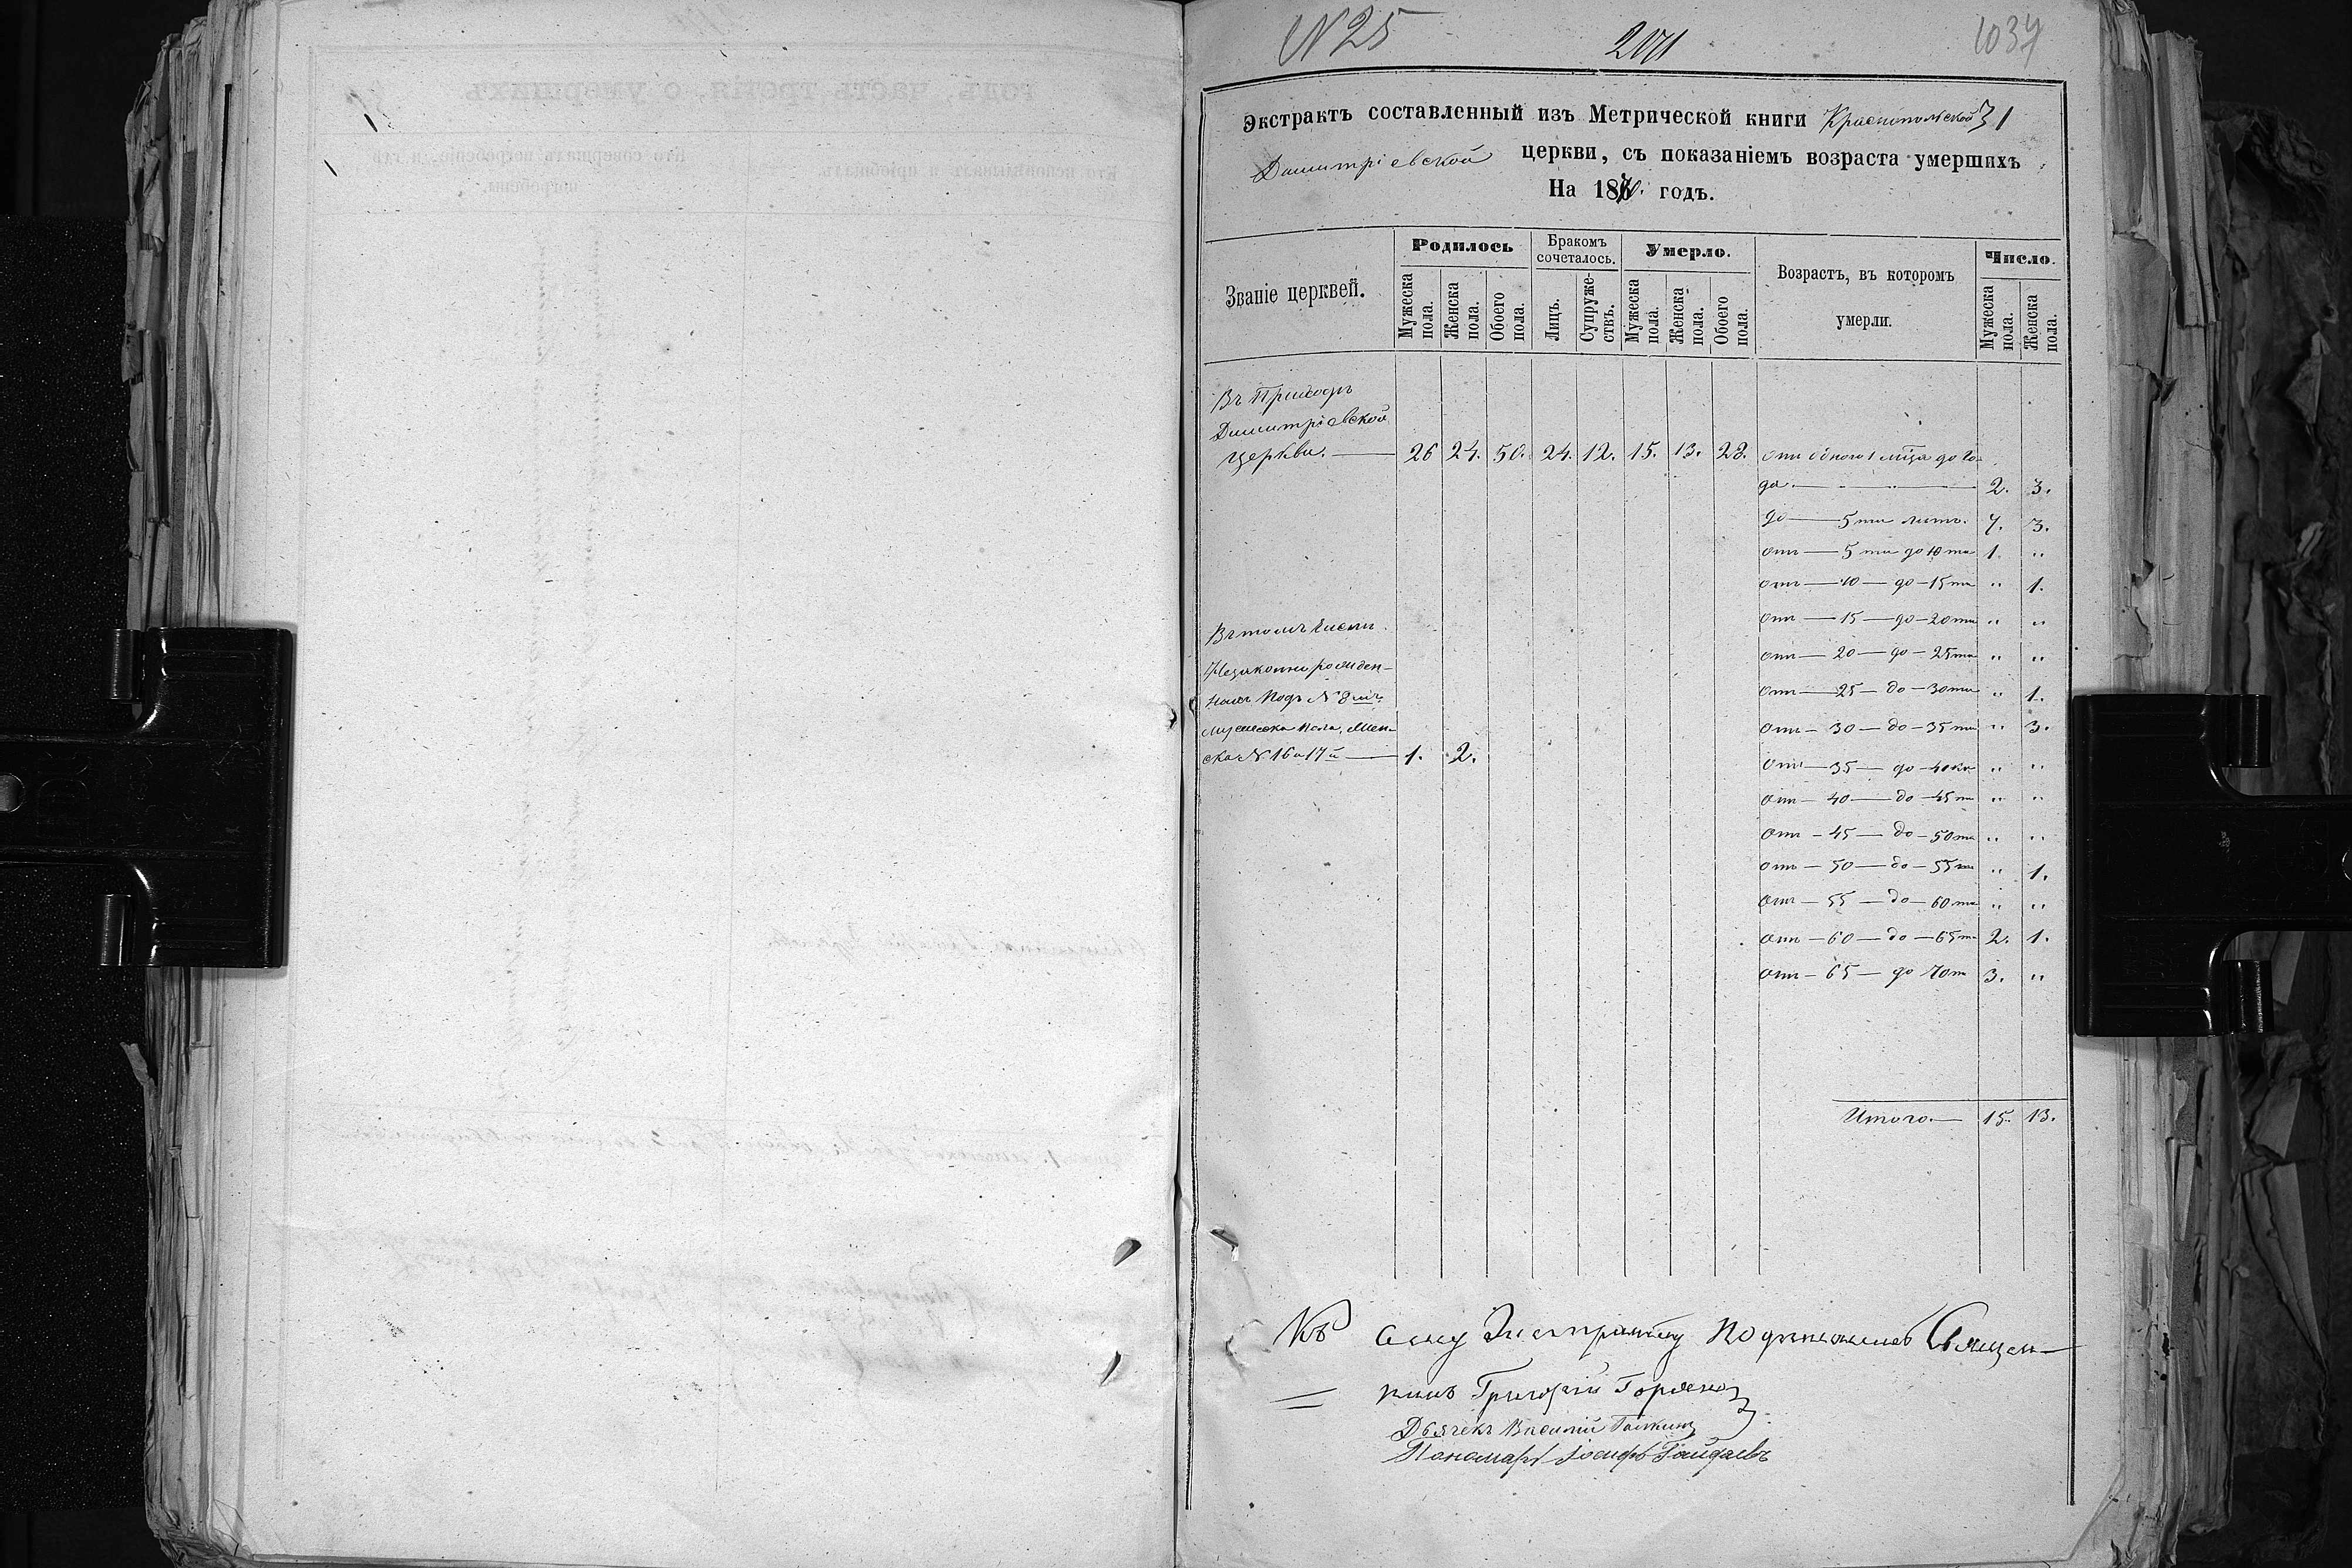 N 25
201
1037
31
Экстрактъ составленный изъ Метрической книги Краснопольской
Димитріевской церкви, съ показаніемъ возраста умершихъ
На 1870. годъ.
Званіе церквей.
Родилось
Мужеска пола.
Женска пола.
Обоего пола.
Бракомъ сочеталось.
Лицъ.
Супружествъ.
Умерло.
Мужеска пола.
Женска пола.
Обоего пола.
Возрастъ, въ которомъ
умерли.
Число.
Мужеска пола.
Женска пола.
Въ Приходѣ
Димитріевской
церкви. — 26 24. 50. 24. 12. 15. 13. 28. Отъ одного мѣся до го-
да. — 2. 3.
до — 5ти лѣтъ. 7. 3.
отъ — 5ти до 10ти 1. "
отъ — 10 — до — 15ти " 1.
отъ — 15 — до — 20ти " "
отъ — 20 — до — 25ти " "
отъ — 25 — до — 30ти " 1.
отъ — 30 — до — 35ти " 3.
отъ — 35 — до — 40ка " "
отъ — 40 — до — 45ти " "
отъ — 45 — до — 50ти " "
отъ — 50 — до — 55ти " 1.
отъ — 55 — до — 60ти " "
отъ — 60 — до — 65ти 2. 1.
отъ — 65 — до 70ти 3. "
Итого. — 15. 13.
Въ томъ числѣ
Незаконно рожден-
ныхъ подъ №
мужеска пола, жен-
ска № 16 и 17й — 1. 2.
Къ сему Экстракту подписались Священ-
никъ Григорій
Дьячекъ Василій
Пономарь Іосифъ Гайдаевъ